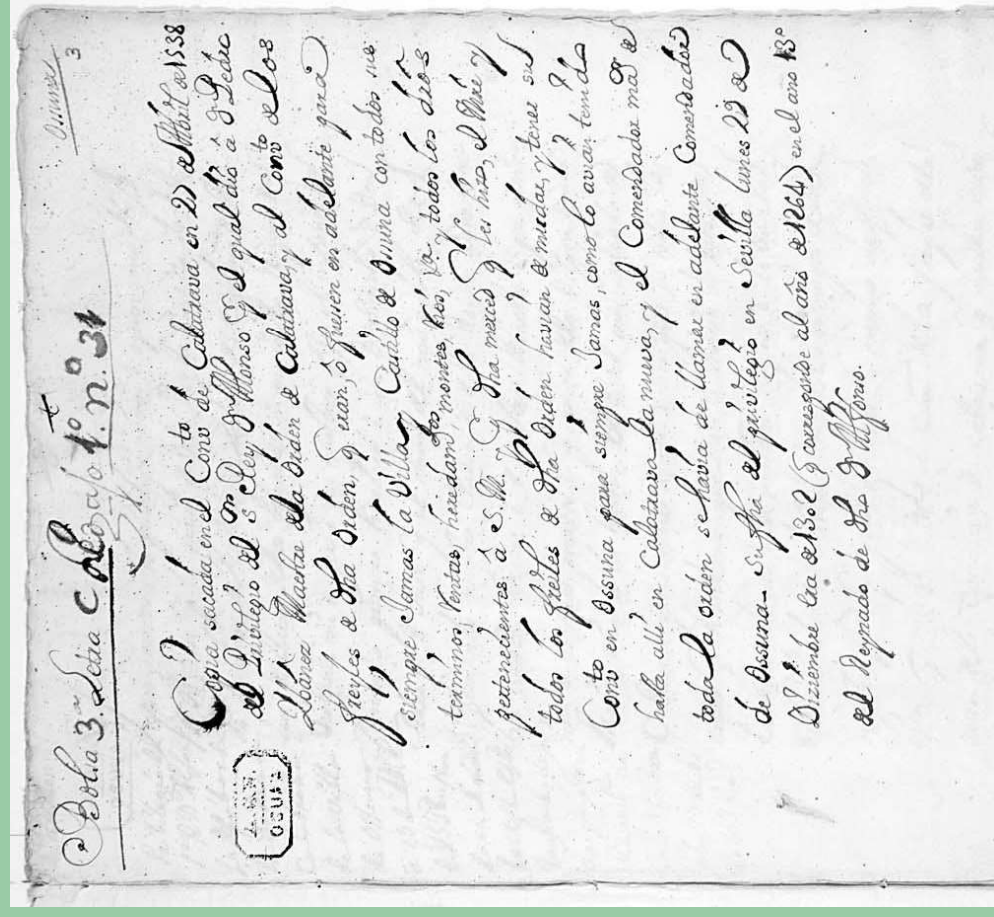 Bolsa 3.ª Letra C Legajo 1.º n.º 31
Osuna
3
Copia sacada en el Conv.to de Calatrava en 27 de Abril de 1538
del Privilegio del S.or Rey D.n Alfonso el qual dio â D. Pedro
Ibañez Maestre de la orden de Calatrava, y al Conv.to de los
freyles de dha orden, q eran, ô fueren en adelante para
siempre Jamas la Villa y Castillo de Osuna con todos sus
terminos, Ventas, heredam.tos, montes, Rios, y todos los dros
pertenecientes â S. M. q dha merced les hizo, el Mre y
todos los freiles de dha orden havian de mudar, y tener su
Conv.to en Ossuna para siempre Jamas, como lo avian tenido
hasta alli en Calatrava la nueva, y el Comendador mā de
toda la orden se havia de llamar en adelante Comendador
de Ossuna. Su fha del privilegio en Sevilla lunes 29 de
Diziembre Era de 1302 (q corresponde al año de 1264) en el año 13º
del Reynado de dho D.n Alfonso.
OSUNA